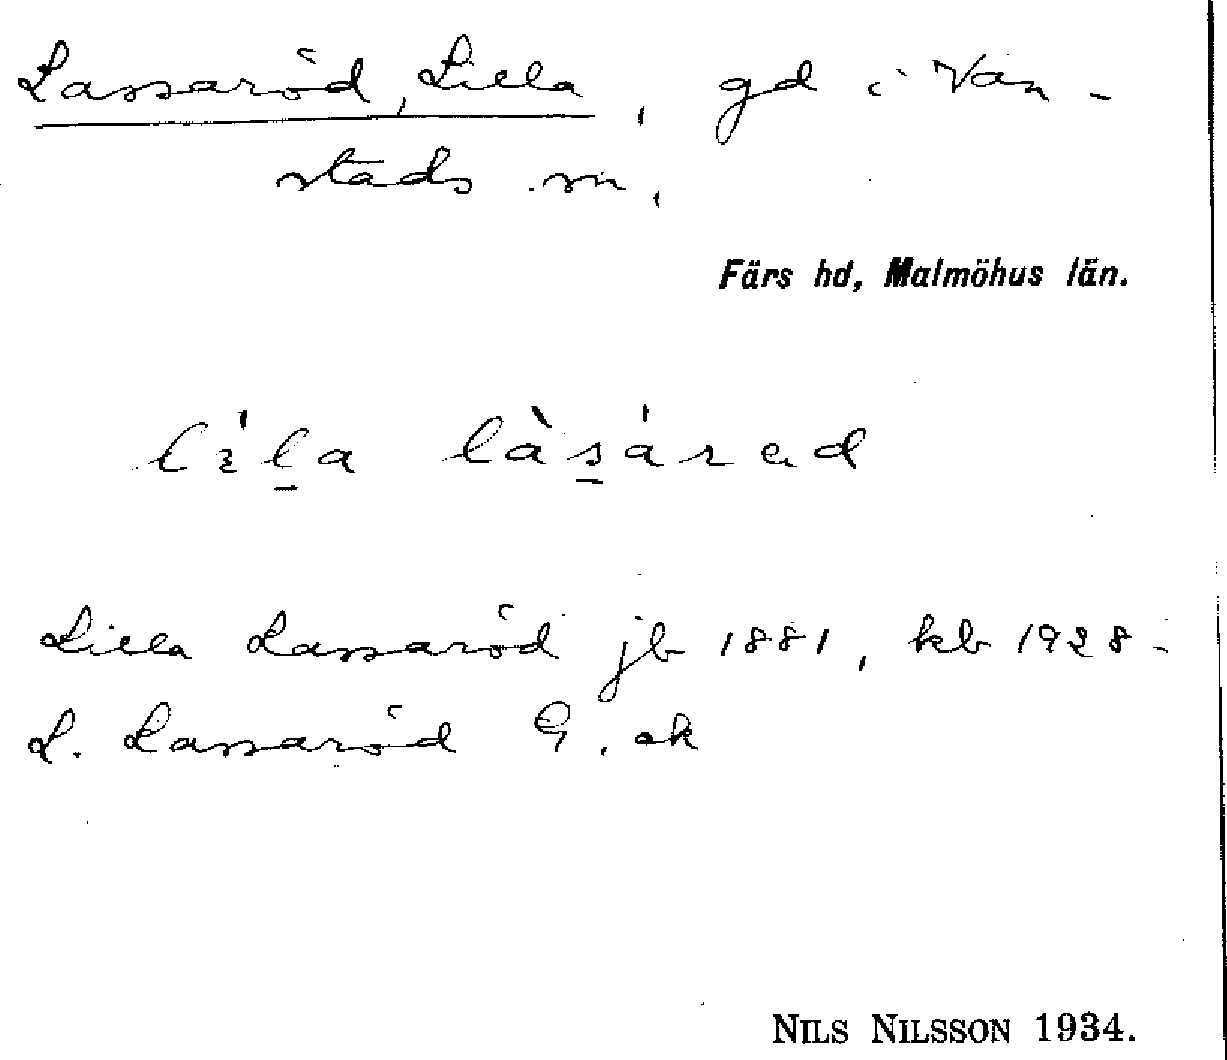 Lassaröd, Lilla, gd i Van-
stads sn,
Färs hd, Malmöhus län.
Lilla Lassaröd jb 1881, kb 1928
L. Lassaröd G. ek
NILS NILSSON 1934.